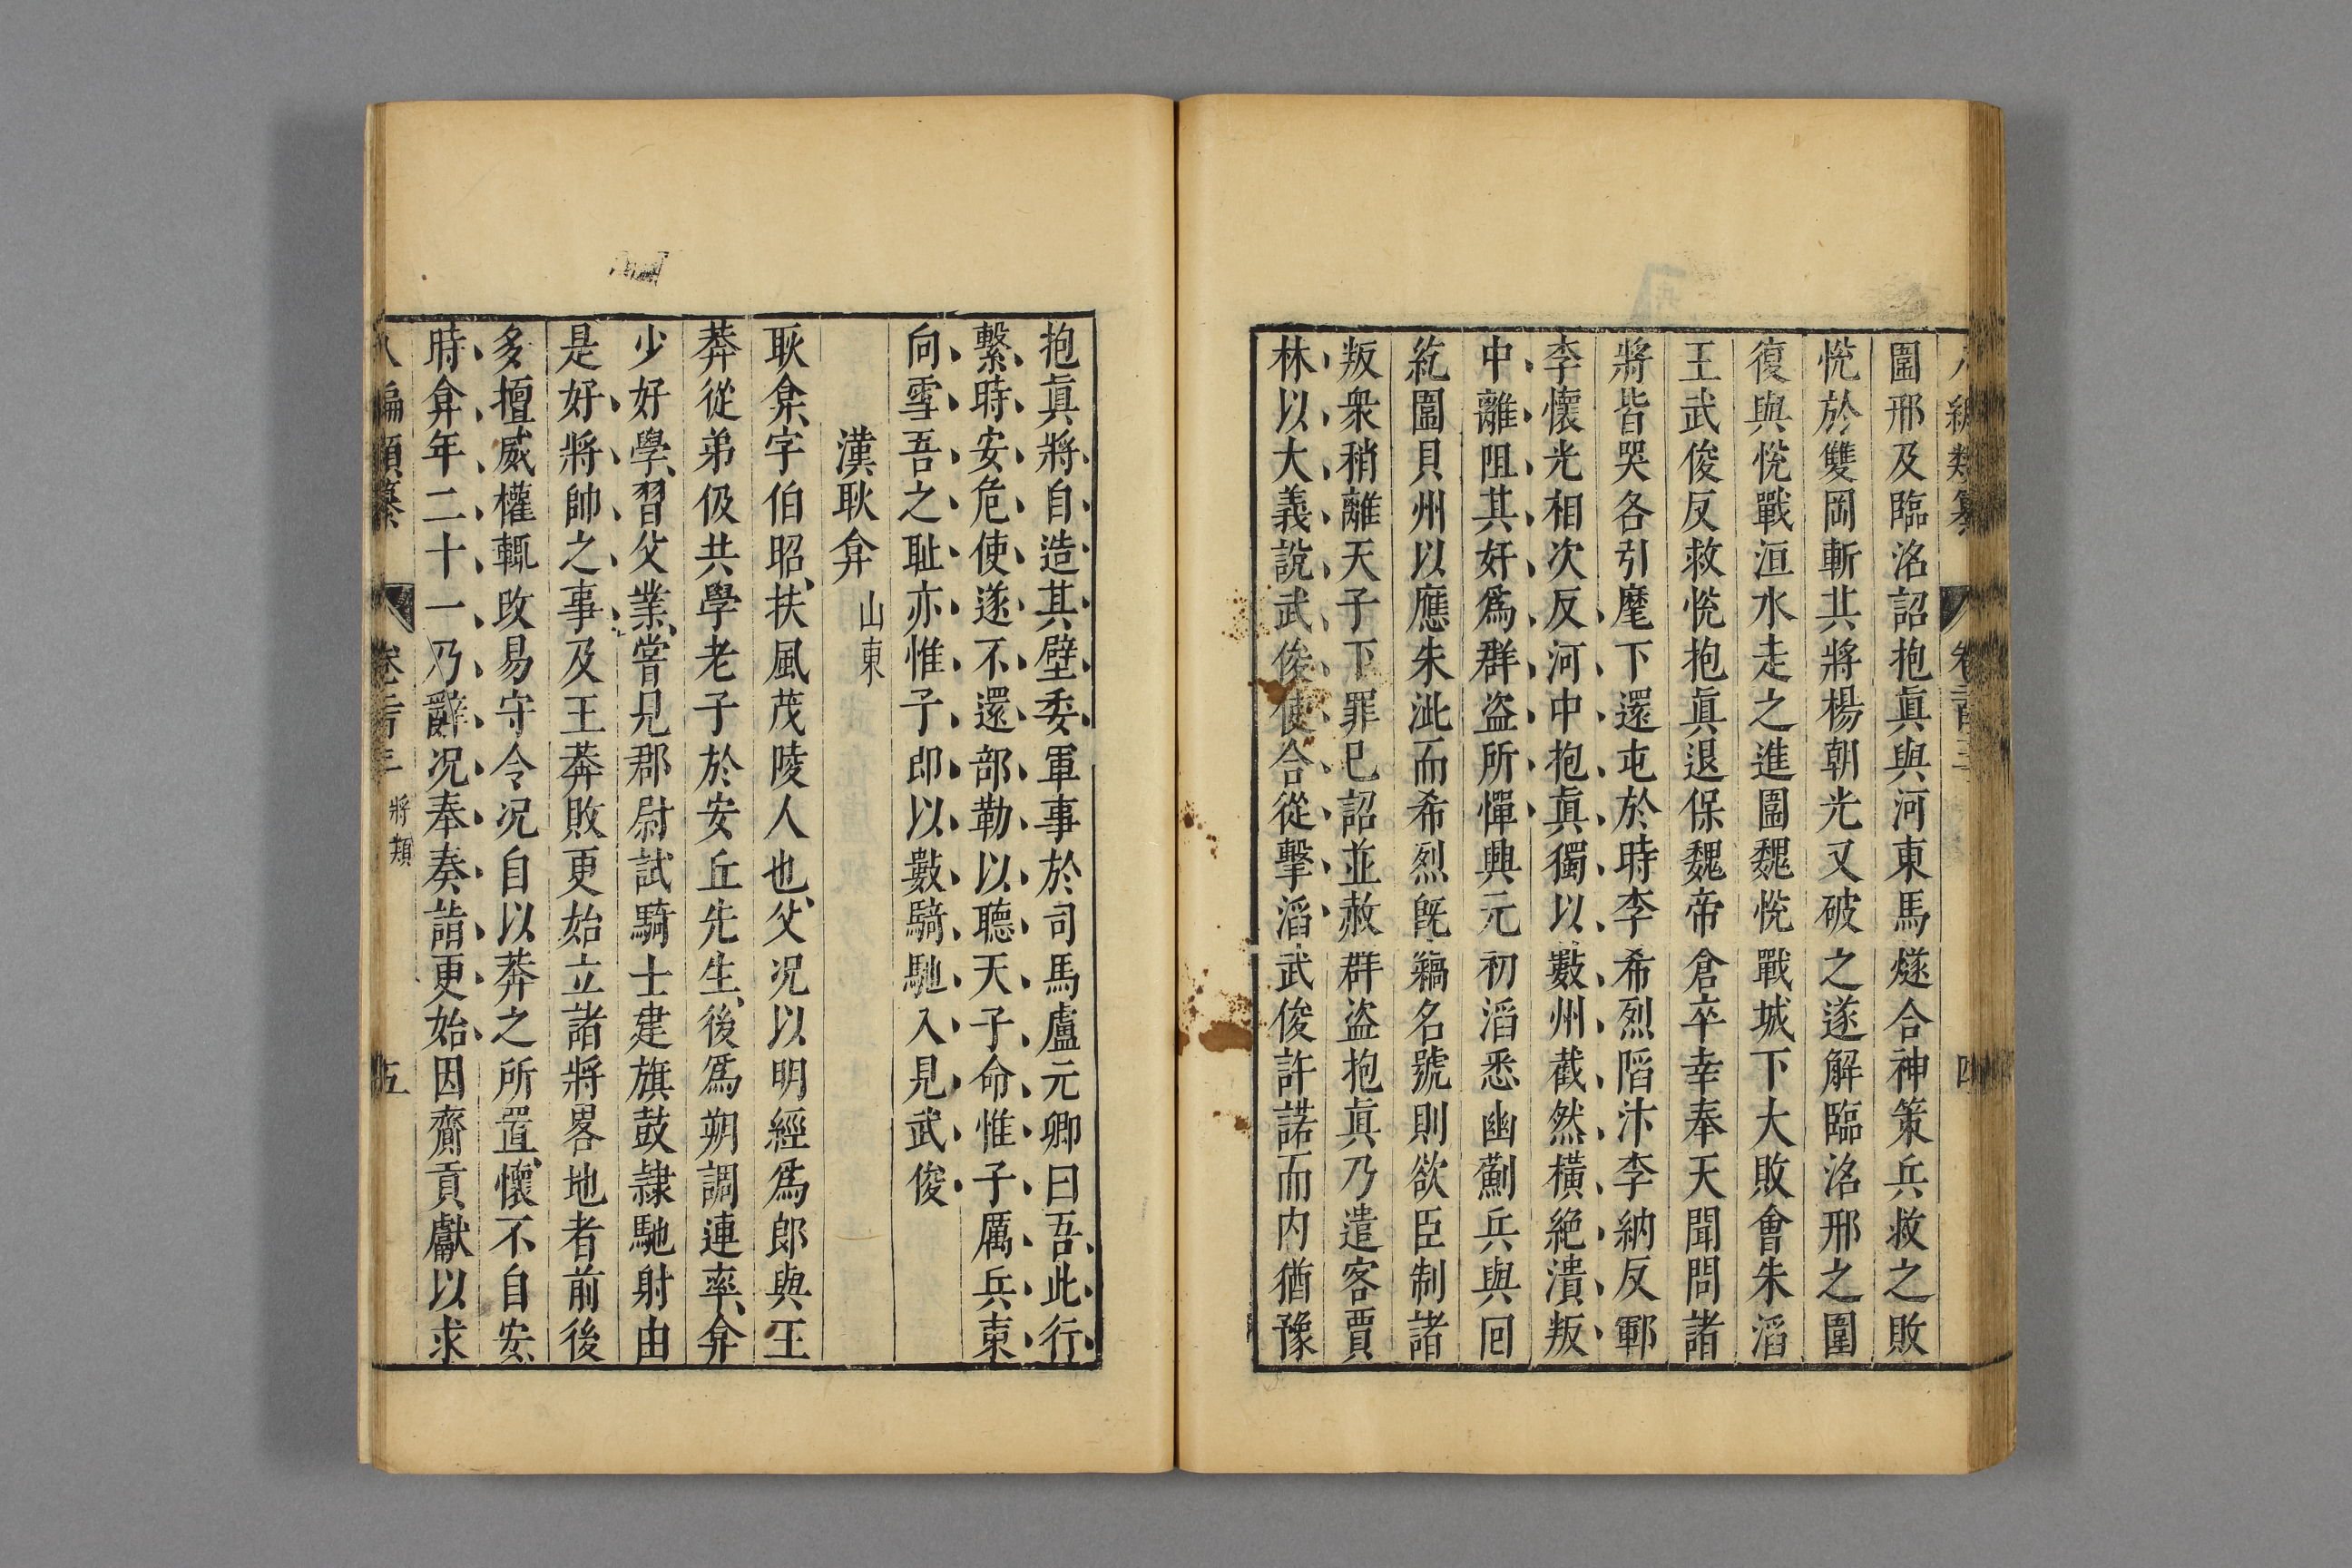 圍邢及臨洺詔抱眞與河東馬燧合神策兵救之敗
悅於雙岡斬其將楊朝光又破之遂解臨洺邢之圍
復與悅戰洹水走之進圍魏悅戰城下大敗會朱滔
王武俊反救悅抱眞退保魏帝倉卒幸奉天聞問諸
將皆哭各引麾下還屯於時李希烈陷汴李納反鄆
李懷光相次反河中抱眞獨以數州截然橫絶潰叛
中離阻其奸爲群盜所憚興元初滔悉幽薊兵與回
紇圍貝州以應朱泚而希烈旣竊名號則欲臣制諸
叛衆稍離天子下罪已詔並赦群盜抱眞乃遣客賈
林以大義說武俊使合從擊滔武俊許諾而内猶豫
抱眞將自造其壁委軍事於司馬盧元卿曰吾此行
繫時安危使遂不還部勒以聽天子命惟子厲兵東
向雪吾之耻亦惟子即以數騎馳入見武俊
漢耿弇 山東
耿弇字伯昭扶風茂陵人也父况以明經爲郎與王
莽從弟伋共學老子於安丘先生後爲朔調連率弇
少好學習父業嘗見郡尉試騎士建旗鼓隷馳射由
是好將帥之事及王莽敗更始立諸將畧地者前後
多擅威權輒攺易守令况自以莽之所置懷不自安
時弇年二十一乃辭况奉奏詣更始因齎貢獻以求
八編類纂 卷 將類 五